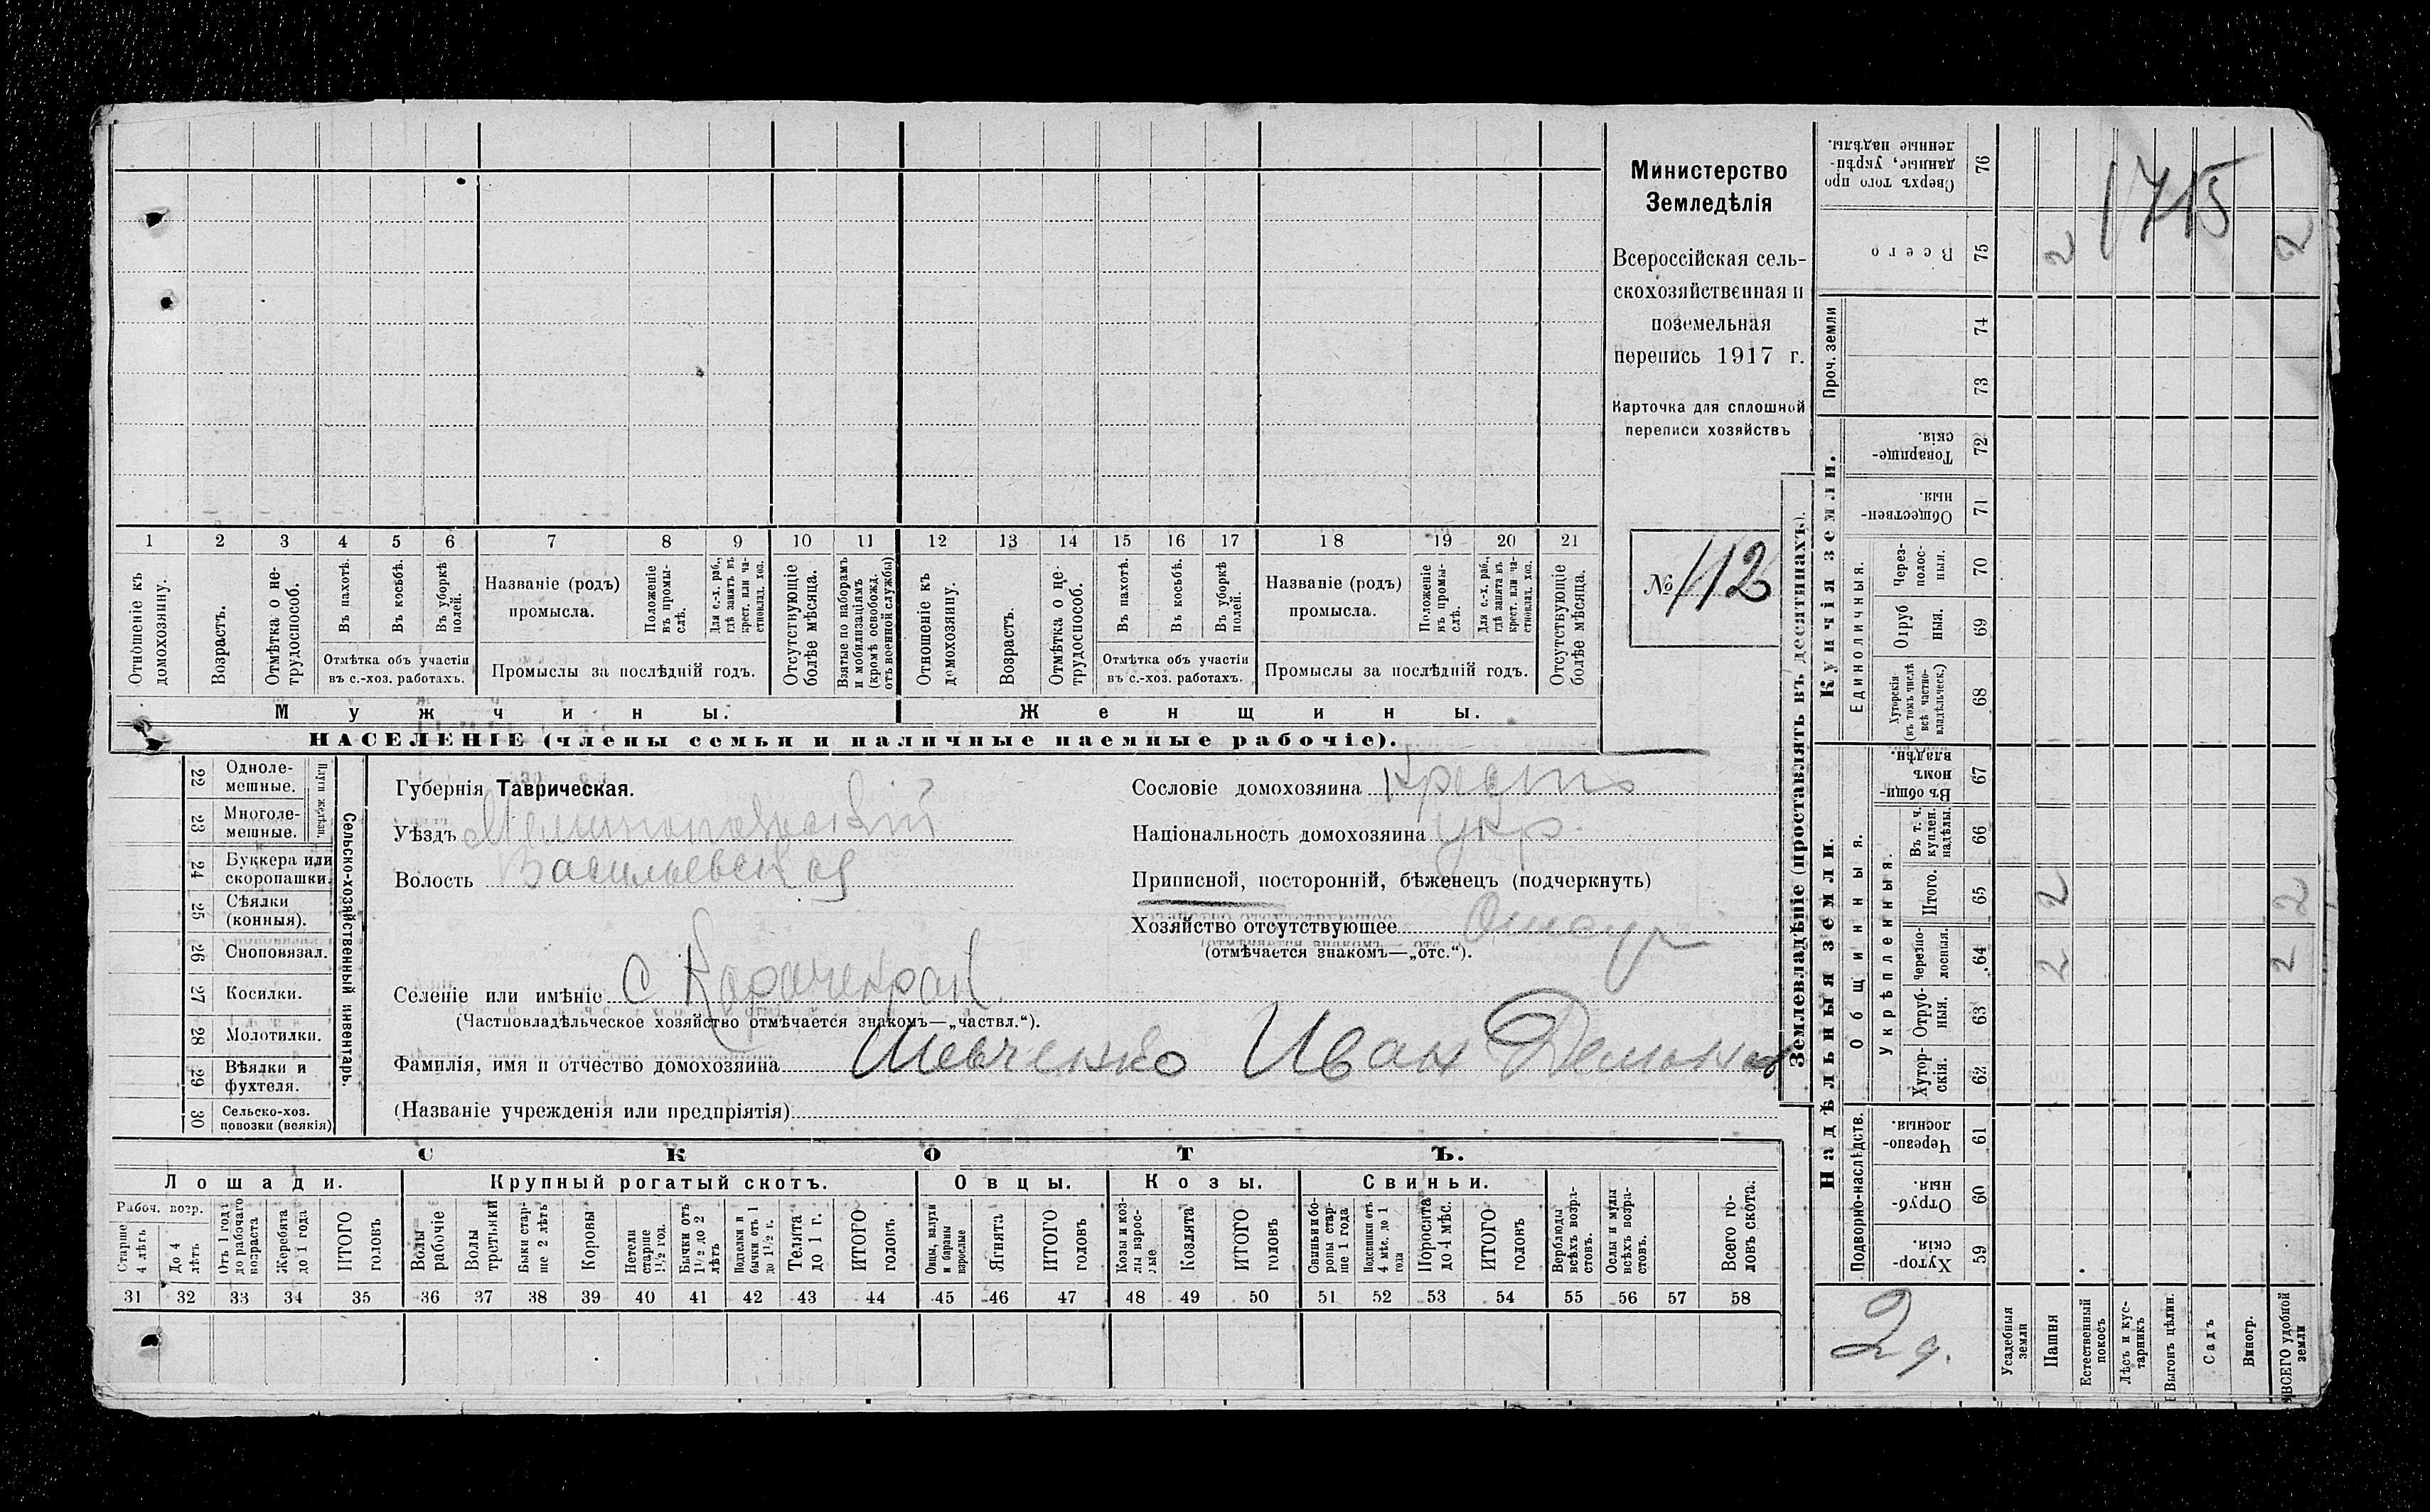 Министерство
Земледѣлія
Всероссійская сель-
скохозяйственная и
поземельная
перепись 1917 г.
Карточка для сплошной
переписи хозяйствъ
№ 112
1 2 3 4 5 6 7 8 9 10 11 12 13 14 15 16 17 18 19 20 21
Отношеніе къ домохозяину.
Возрастъ.
Отмѣтка о не-трудоспособ.
Въ пахотѣ.
Въ косьбѣ.
Въ уборкѣ полей.
Отмѣтка объ участіи
въ с.-хоз. работахъ.
Названіе (родъ)
промысла.
Положеніе въ промы-слѣ.
Для с.-х. раб., гдѣ занятъ въ крест. или ча-стновлад. хоз.
Промыслы за послѣдній годъ.
Отсутствующіе болѣе мѣсяца.
Взятые по наборамъ и мобилизаціямъ (кромѣ освобожд. отъ военной службы)
Отношеніе къ домохозяину.
Возрастъ.
Отмѣтка о не-трудоспособ.
Въ пахотѣ.
Въ косьбѣ.
Въ уборкѣ полей.
Отмѣтка объ участіи
въ с.-хоз. работахъ.
Названіе (родъ)
промысла.
Положеніе въ промы-слѣ.
Для с.-х. раб., гдѣ занята въ крест. или ча-стновлад. хоз.
Промыслы за послѣдній годъ.
Отсутствующіе болѣе мѣсяца.
Мужчины.
Женщины.
НАСЕЛЕНІЕ (члены семьи и наличные наемные рабочіе).
22 Однолемешные.
23 Многолемешные.
Плуги желѣзн.
24 Буккера или скоропашки.
25 Сѣялки (конныя).
26 Сноповязал.
27 Косилки.
28 Молотилки.
29 Вѣялки и фухтеля.
30 Сельско-хоз. повозки (всякія)
Сельско-хозяйственный инвентарь.
Губернія Таврическая.
Уѣздъ Мелитопольский
Волость Васильевская
Селеніе или имѣніе с
(Частновладѣльческое хозяйство отмѣчается знакомъ—„частвл.“).
Фамилія, имя и отчество домохозяина Шевченко Иван
(Названіе учрежденія или предпріятія)
Сословіе домохозяина
Національность домохозяина укр.
Приписной, посторонній, бѣженецъ (подчеркнуть)
Хозяйство отсутствующее
(отмѣчается знакомъ—„отс.“).
СКОТЪ.
Лошади.
Крупный рогатый скотъ.
Овцы.
Козы.
Свиньи.
Рабоч. возр.
Старше 4 лѣтъ
До 4 лѣтъ
Отъ 1 года до рабочаго возраста
Жеребята до 1 года
ИТОГО головъ
Волы рабочіе
Волы третьяки
Быки стар-ше 2 лѣтъ
Коровы
Нетели старше 1½ год.
Бычки отъ 1½ до 2 лѣтъ
Подтелки и бычки отъ 1 до 1½ г.
Телята до 1 г.
ИТОГО головъ
Овцы, валухи и бараны взрослые
Ягнята
ИТОГО головъ
Козы и коз-лы взрос-лые
Козлята
ИТОГО головъ
Свиньи и бо-ровы стар-ше 1 года
Подсвинки отъ 4 мѣс. до 1 года
Поросята до 4 мѣс.
ИТОГО головъ
Верблюды всѣхъ возра-стовъ.
Ослы и мулы всѣхъ возра-стовъ.
Всего го-ловъ скота.
31 32 33 34 35 36 37 38 39 40 41 42 43 44 45 46 47 48 49 50 51 52 53 54 55 56 57 58
Землевладѣніе (проставлять въ десятинахъ).
Купчія земли.
Надѣльныя земли.
Проч. земли
Единоличныя.
Общинныя.
Укрѣпленныя.
Подворно-наслѣдств.
Сверхъ того про данные, укрѣп-ленные надѣлы. 76
Всего 75 2 2
1715
74
73
Товарище-скія. 72
Обществен-ныя. 71
Через-полос-ныя. 70
Отруб ныя. 69
Хуторскія (въ томъ числѣ всѣ частно-владѣльческ.) 68
Въ общи-номъ владѣн. 67
Въ т. ч. куплен. надѣлы. 66
Итого. 65 2 2
Черезпо-лосныя. 64 2 2
Отруб-ныя. 63
Хутор-скія. 62
Черезпо-лосныя. 61
Отруб-ныя. 60
Хутор-скія. 59
2 д.
Усадебныя земли
Пашня
Естественный покосъ
Лѣсъ и кус-тарникъ
Выгонъ цѣлин.
Садъ
Виногр.
ВСЕГО удобной земли